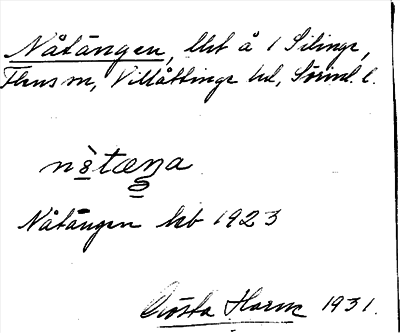 Nåtängen, lht å 1 Silinge,
Flens sn, Villåttinge hd, Sörml. l.
nàtæŋa
Nåtängen kb 1923
Gösta Harme 1931.